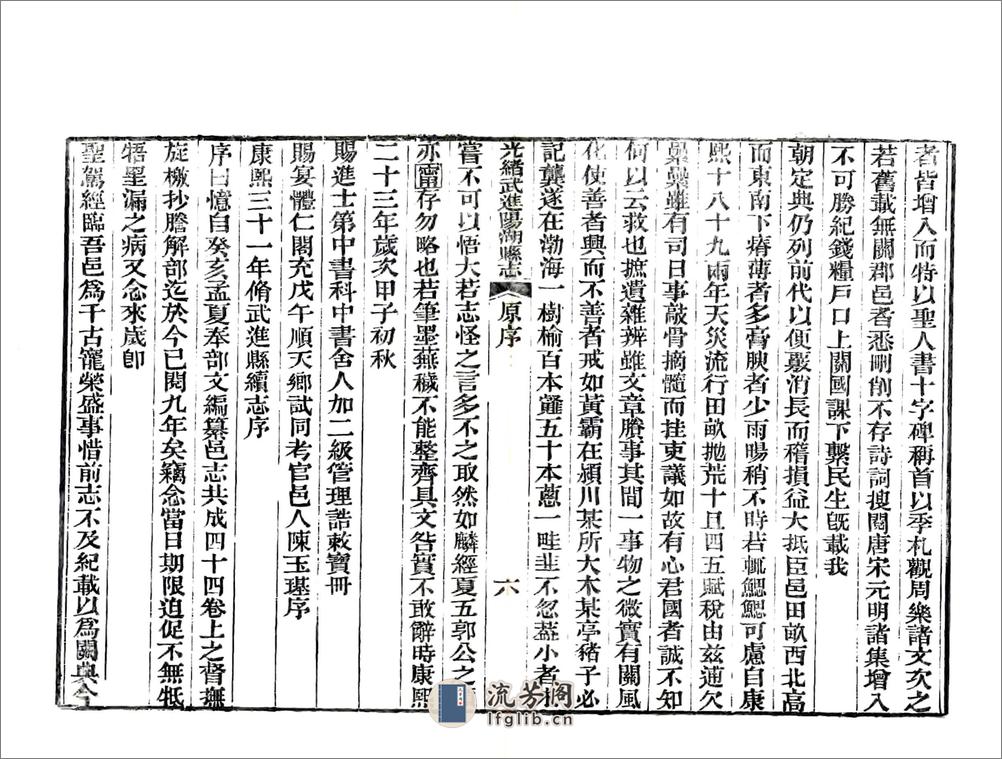 者皆增入而特以聖人書十字碑稱首以季札觀周樂諸文次之
若舊載無關郡邑者悉刪削不存詩詞搜閱唐宋元明諸集增入
不可勝紀錢糧戶口上關國課下繫民生旣載我
朝定典仍列前代以便覈消長而稽損益大抵臣邑田畝西北高
而東南下瘠薄者多膏腴者少雨暘稍不時若輒鰓鰓可慮自康
熙十八十九兩年天災流行田畝拋荒十且四五賦稅由茲逋欠
纍纍雖有司日事敲骨摘髓而挂吏議如故有心君國者誠不知
何以云救也摭遺雜辨雖文章賸事其間一事物之微實有關風
化使善者興而不善者戒如黃霸在潁川某所大木某亭豬子必
記龔遂在渤海一樹榆百本薤五十本蔥一畦韭不忽蓋小者
光緒武進陽湖縣志 原序 六
嘗不可以悟大若志怪之言多不之取然如麟經夏五郭公之
亦甯存勿略也若筆墨蕪穢不能整齊具文咎實不敢辭時康熙
二十三年歲次甲子初秋
賜進士第中書科中書舍人加二級管理誥敕寶冊
賜宴體仁閣充戊午順天鄉試同考官邑人陳玉璂序
康熙三十一年脩武進縣續志序
序曰憶自癸亥孟夏奉部文編纂邑志共成四十四卷上之督撫
旋檄抄謄解部迄於今已閱九年矣竊念當日期限迫促不無牴
牾罣漏之病又念來歲卽
聖駕經臨吾邑爲千古寵榮盛事惜前志不及紀載以爲闕典今
流芳閣
lfglib.cn